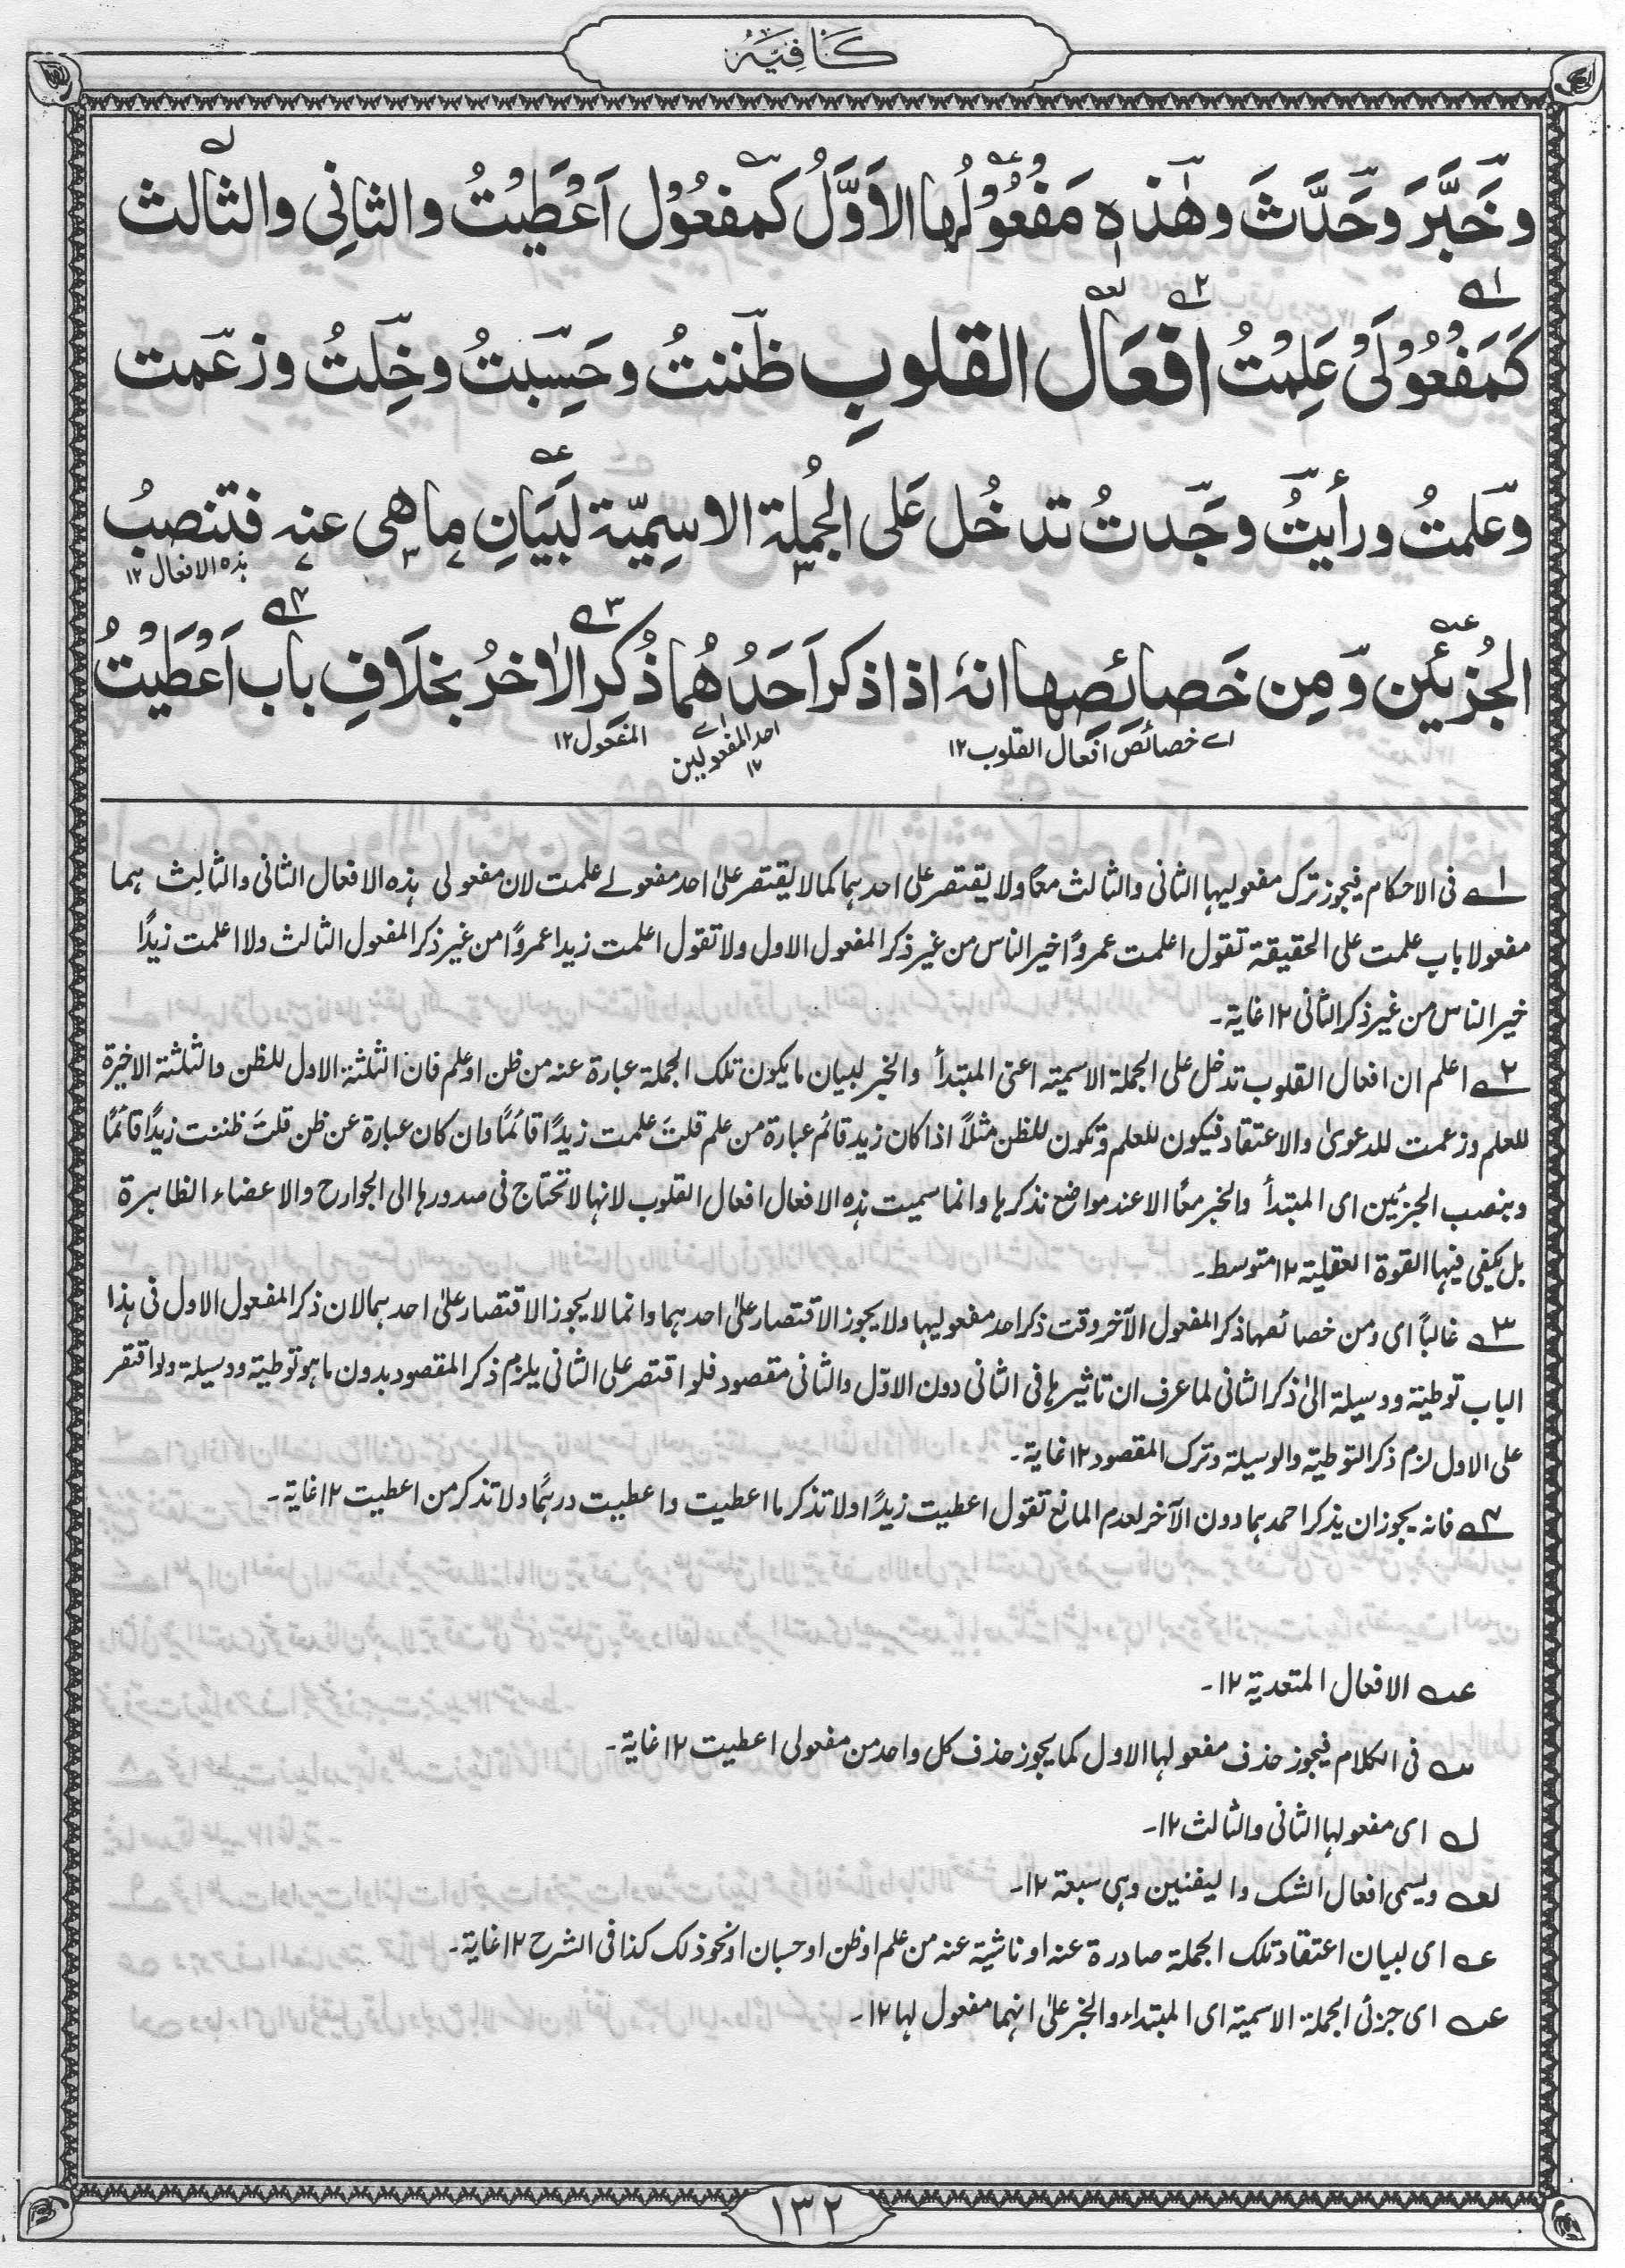 كَافِيَه
وخَبَّرَ وحَدَّثَ وهٰذهٖ مَفْعُوْلُها الاَوَّلُ كَمفعُوْل اَعْطَيْتُ والثانِى والثالث
كَمَفْعُوْلَىْ عَلِمْتُ افعَال القلوبِ ظَننتُ وحَسِبتُ وخِلتُ وزعَمت
وعَلمتُ ورأيتُ وجَدتُ تدخُل عَلى الجُملة الاسِمِيّة لبَيَانِ ماهى عنه فتنصبُ
هذه الافعال ١٢
الجُزئَين ومِن خَصائصِها انهٗ اذا ذكر اَحَدُهُما ذُكر الاٰخرُ بخلَافِ باب اَعْطَيْتُ
اے خصائص افعال القلوب ١٢
اے احد المفعولين ١٢
المفعول ١٢
١ فى الاحكام فيجوز ترك مفعوليها الثانى والثالث معًا ولا يقتصر على احدهما كما لا يقتصر علىٰ احد مفعولے علمت لان مفعولى هذه الافعال الثانى والثالث هما
مفعولا باب علمت على الحقيقة تقول اعلمت عمروًا خير الناس من غير ذكر المفعول الاول ولا تقول اعلمت زيدا عمروًا من غير ذكر المفعول الثالث ولا اعلمت زيدًا
خير الناس من غير ذكر الثانى ١٢ غاية۔
٢ اعلم ان افعال القلوب تدخل على الجملة الاسمية اعنى المبتدأ والخبر لبيان ما يكون تلك الجملة عبارة عنه من ظن او علم فان الثلثة الاول للظن والثلثة الاخيرة
للعلم وزعمت للدعوىٰ والاعتقاد فيكون للعلم وتكون للظن مثلاً اذا كان زيد قائم عبارة من علم قلتَ علمت زيدًا قائمًا وان كان عبارة عن ظن قلتَ ظننت زيدًا قائمًا
وينصب الجزئين اى المبتدأ والخبر معًا الا عند مواضع نذكرها وانما سميت هذه الافعال افعال القلوب لانها لا تحتاج فى صدورها الى الجوارح والاعضاء الظاهرة
بل يكفى فيها القوة العقلية ١٢ متوسط۔
٣ غالباً اى ومن خصائصها ذكر المفعول الآخر وقت ذكر احد مفعوليها ولا يجوز الاقتصار علىٰ احدهما وانما لا يجوز الاقتصار علىٰ احدهما لان ذكر المفعول الاول فى هذا
الباب توطية ووسيلة الىٰ ذكر الثانى لما عرف ان تاثيرها فى الثانى دون الاوّل والثانى مقصود فلو اقتصر على الثانى يلزم ذكر المقصود بدون ما هو توطية ووسيلة ولو اقتصر
على الاول لزم ذكر التوطية والوسيلة وترك المقصود ١٢ غاية۔
٤ فانه يجوز ان يذكر احدهما دون الآخر لعدم المانع تقول اعطيت زيدًا ولا تذكر ما اعطيت واعطيت درهمًا ولا تذكر من اعطيت ١٢ غاية۔
عـه الافعال المتعدية ١٢۔
سـه فى الكلام فيجوز حذف مفعولها الاول كما يجوز حذف كل واحد من مفعولى اعطيت ١٢ غاية۔
لـه اى مفعولها الثانى والثالث ١٢۔
لعـه ويسمى افعال الشك واليقين وهى سبعة ١٢۔
عـه اى لبيان اعتقاد تلك الجملة صادرة عنه او ناشية عنه من علم او ظن او حسبان او نحو ذلك كذا فى الشرح ١٢ غاية۔
عـه اى جزئى الجملة الاسمية اى المبتداء والخبر علىٰ انهما مفعول لها ١٢۔
١٣٢